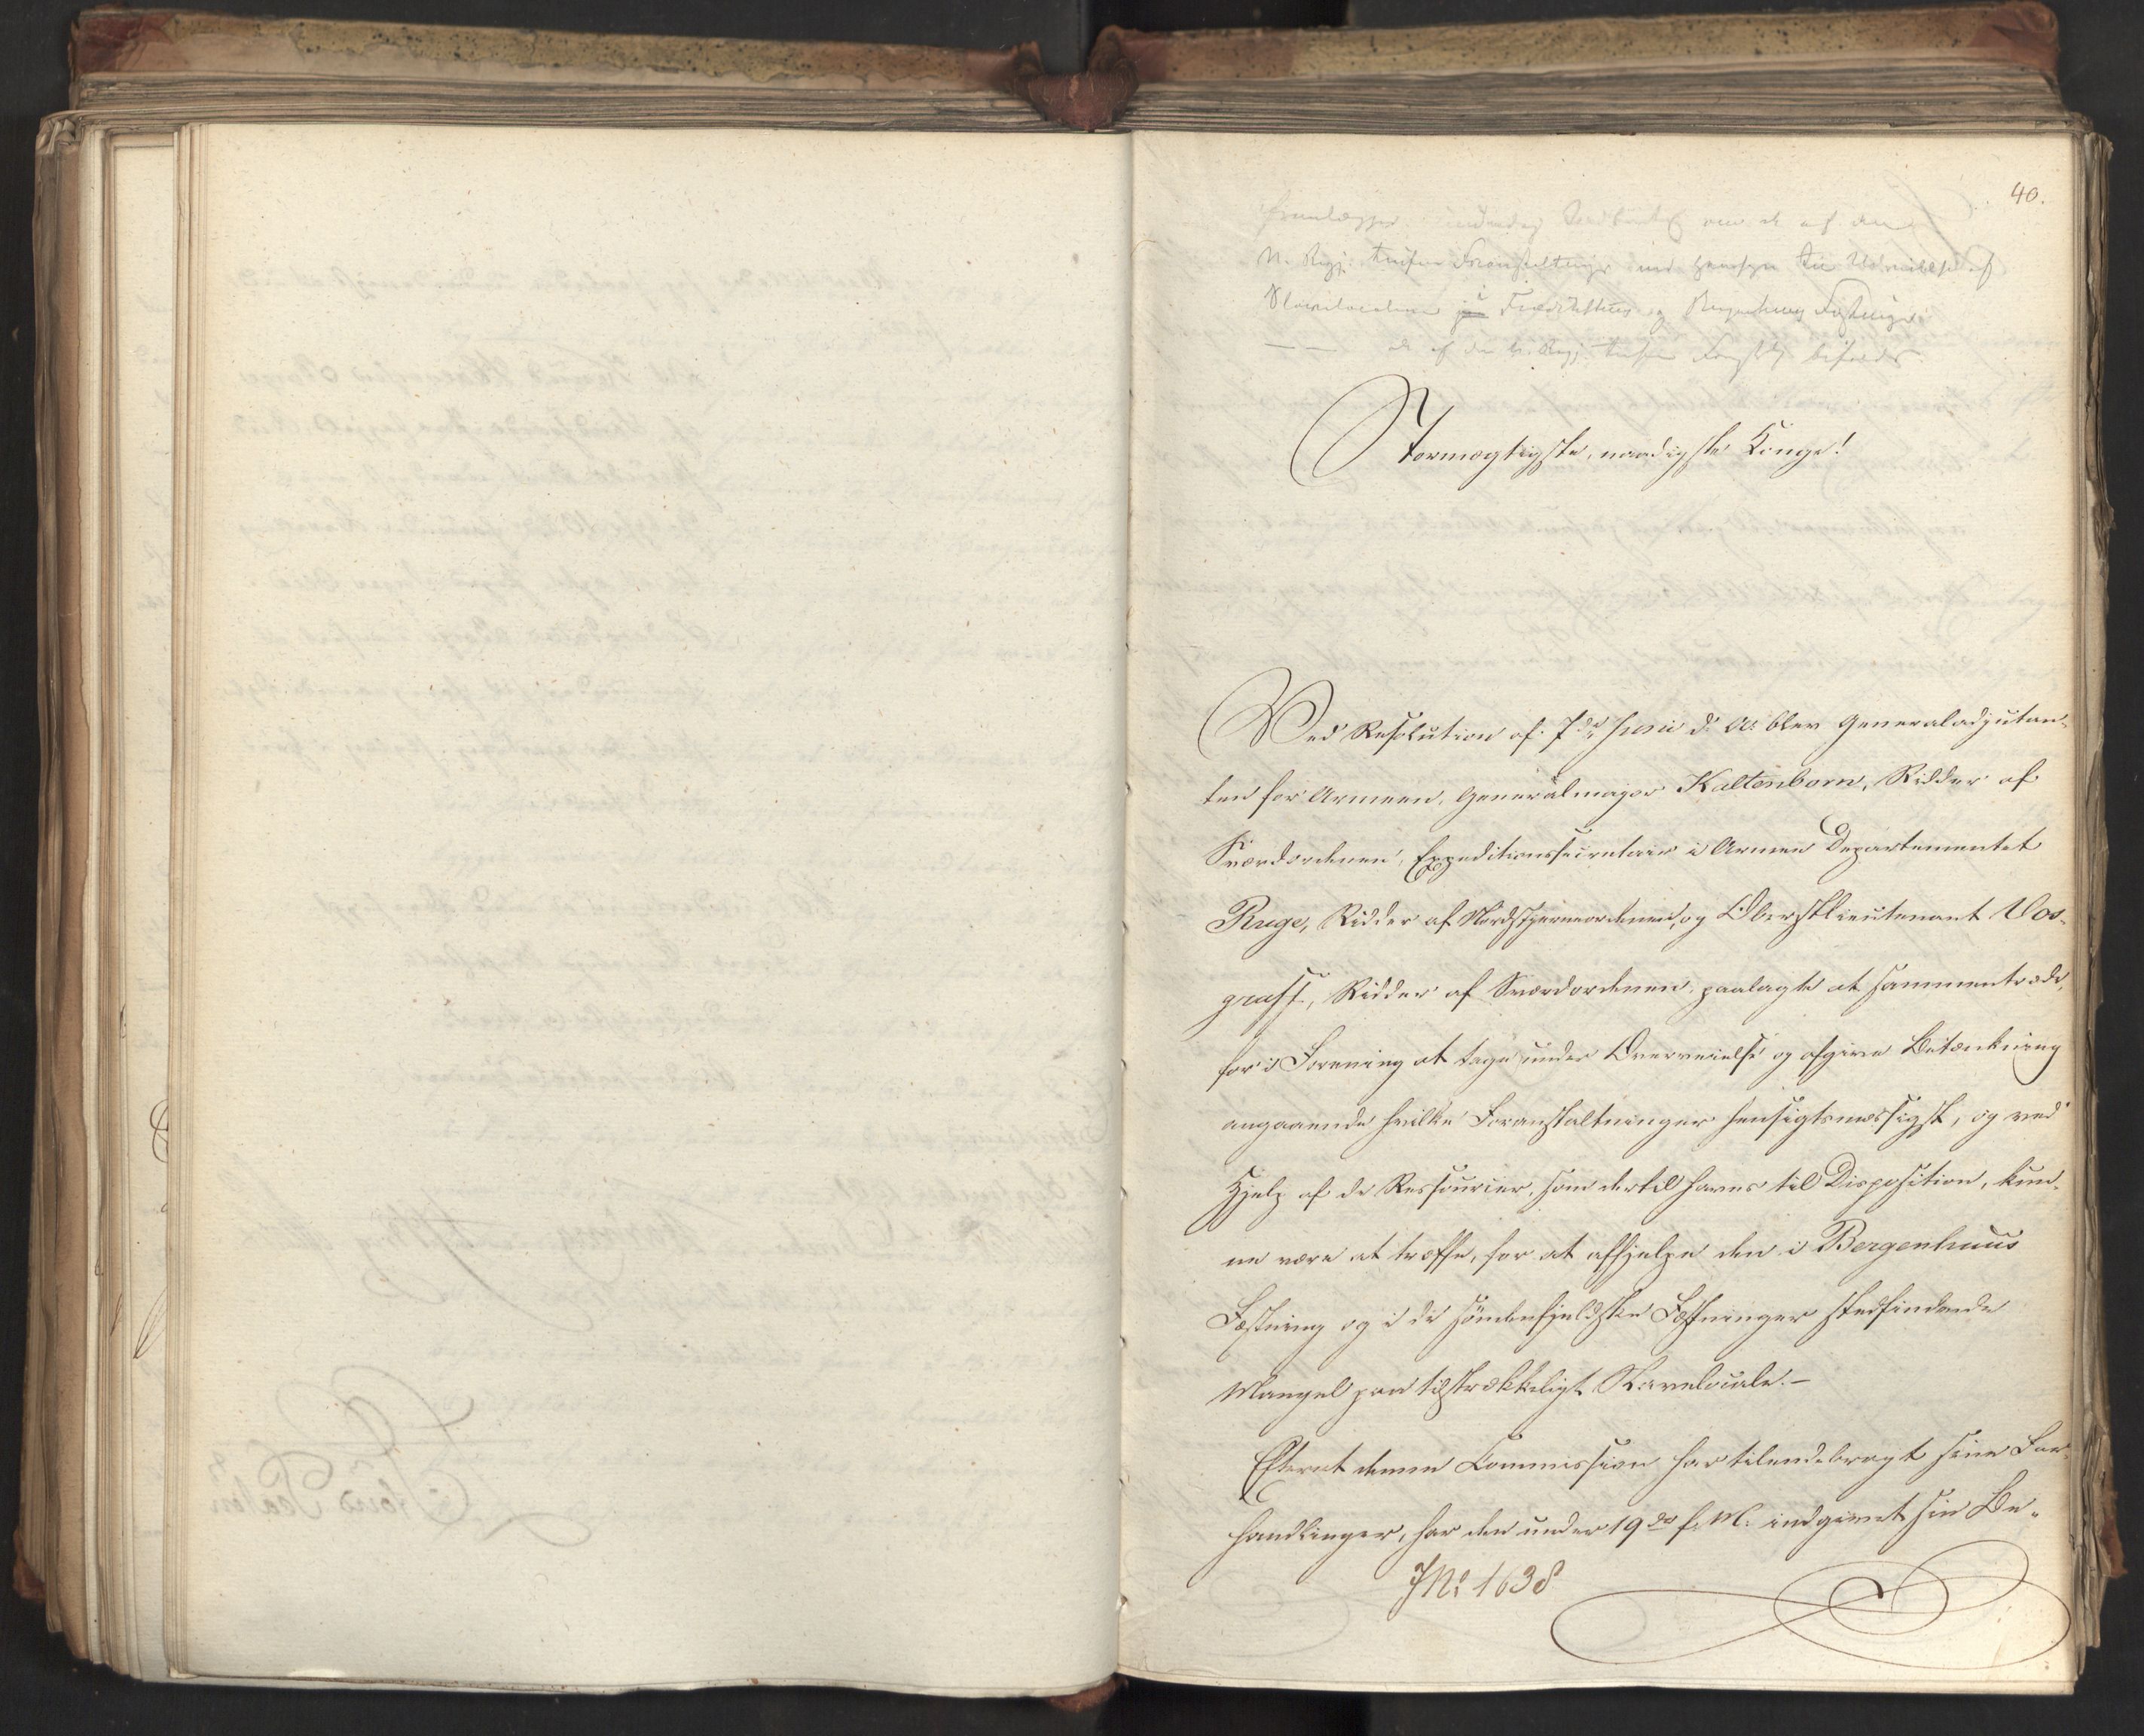 40.
Fremlægges underdanig
N. Regj. trufne Foranstaltninger med Hensyn til Udvidelse af
Slavelocalerne i Fredriksteens og Bergenhuus Fæstninger
—— at de af den N. Regj. trufne bifaldes
Stormægtigste, naadigste Konge!
Ved Resolution af 7de Juni d. A. blev Generaladjutan-
ten for Armeen, Generalmajor Kaltenborn, Ridder af
Sværdordenen, Expeditionssecretair i Armee Departementet
Ruge, Ridder af Nordstjerneordenen, og Oberstlieutenant Vos-
graff, Ridder af Sværdordenen, paalagte at sammentræde,
for i Forening at tage under Overveielse og afgive Betænkning
angaaende hvilke Foranstaltninger hensigtsmæssigst, og ved
Hjelp af de Ressourcer, som dertil haves til Disposition, kun-
ne være at træffe, for at afhjelpe den i Bergenhuus
Fæstning og i de søndenfjeldske Fæstninger stedfindende
Mangel paa tilstrækkeligt Slavelocale.—
Efterat denne Commission har tilendebragt sine For-
handlinger, har den under 19de f. M. indgivet sin Be-
JN: 1638